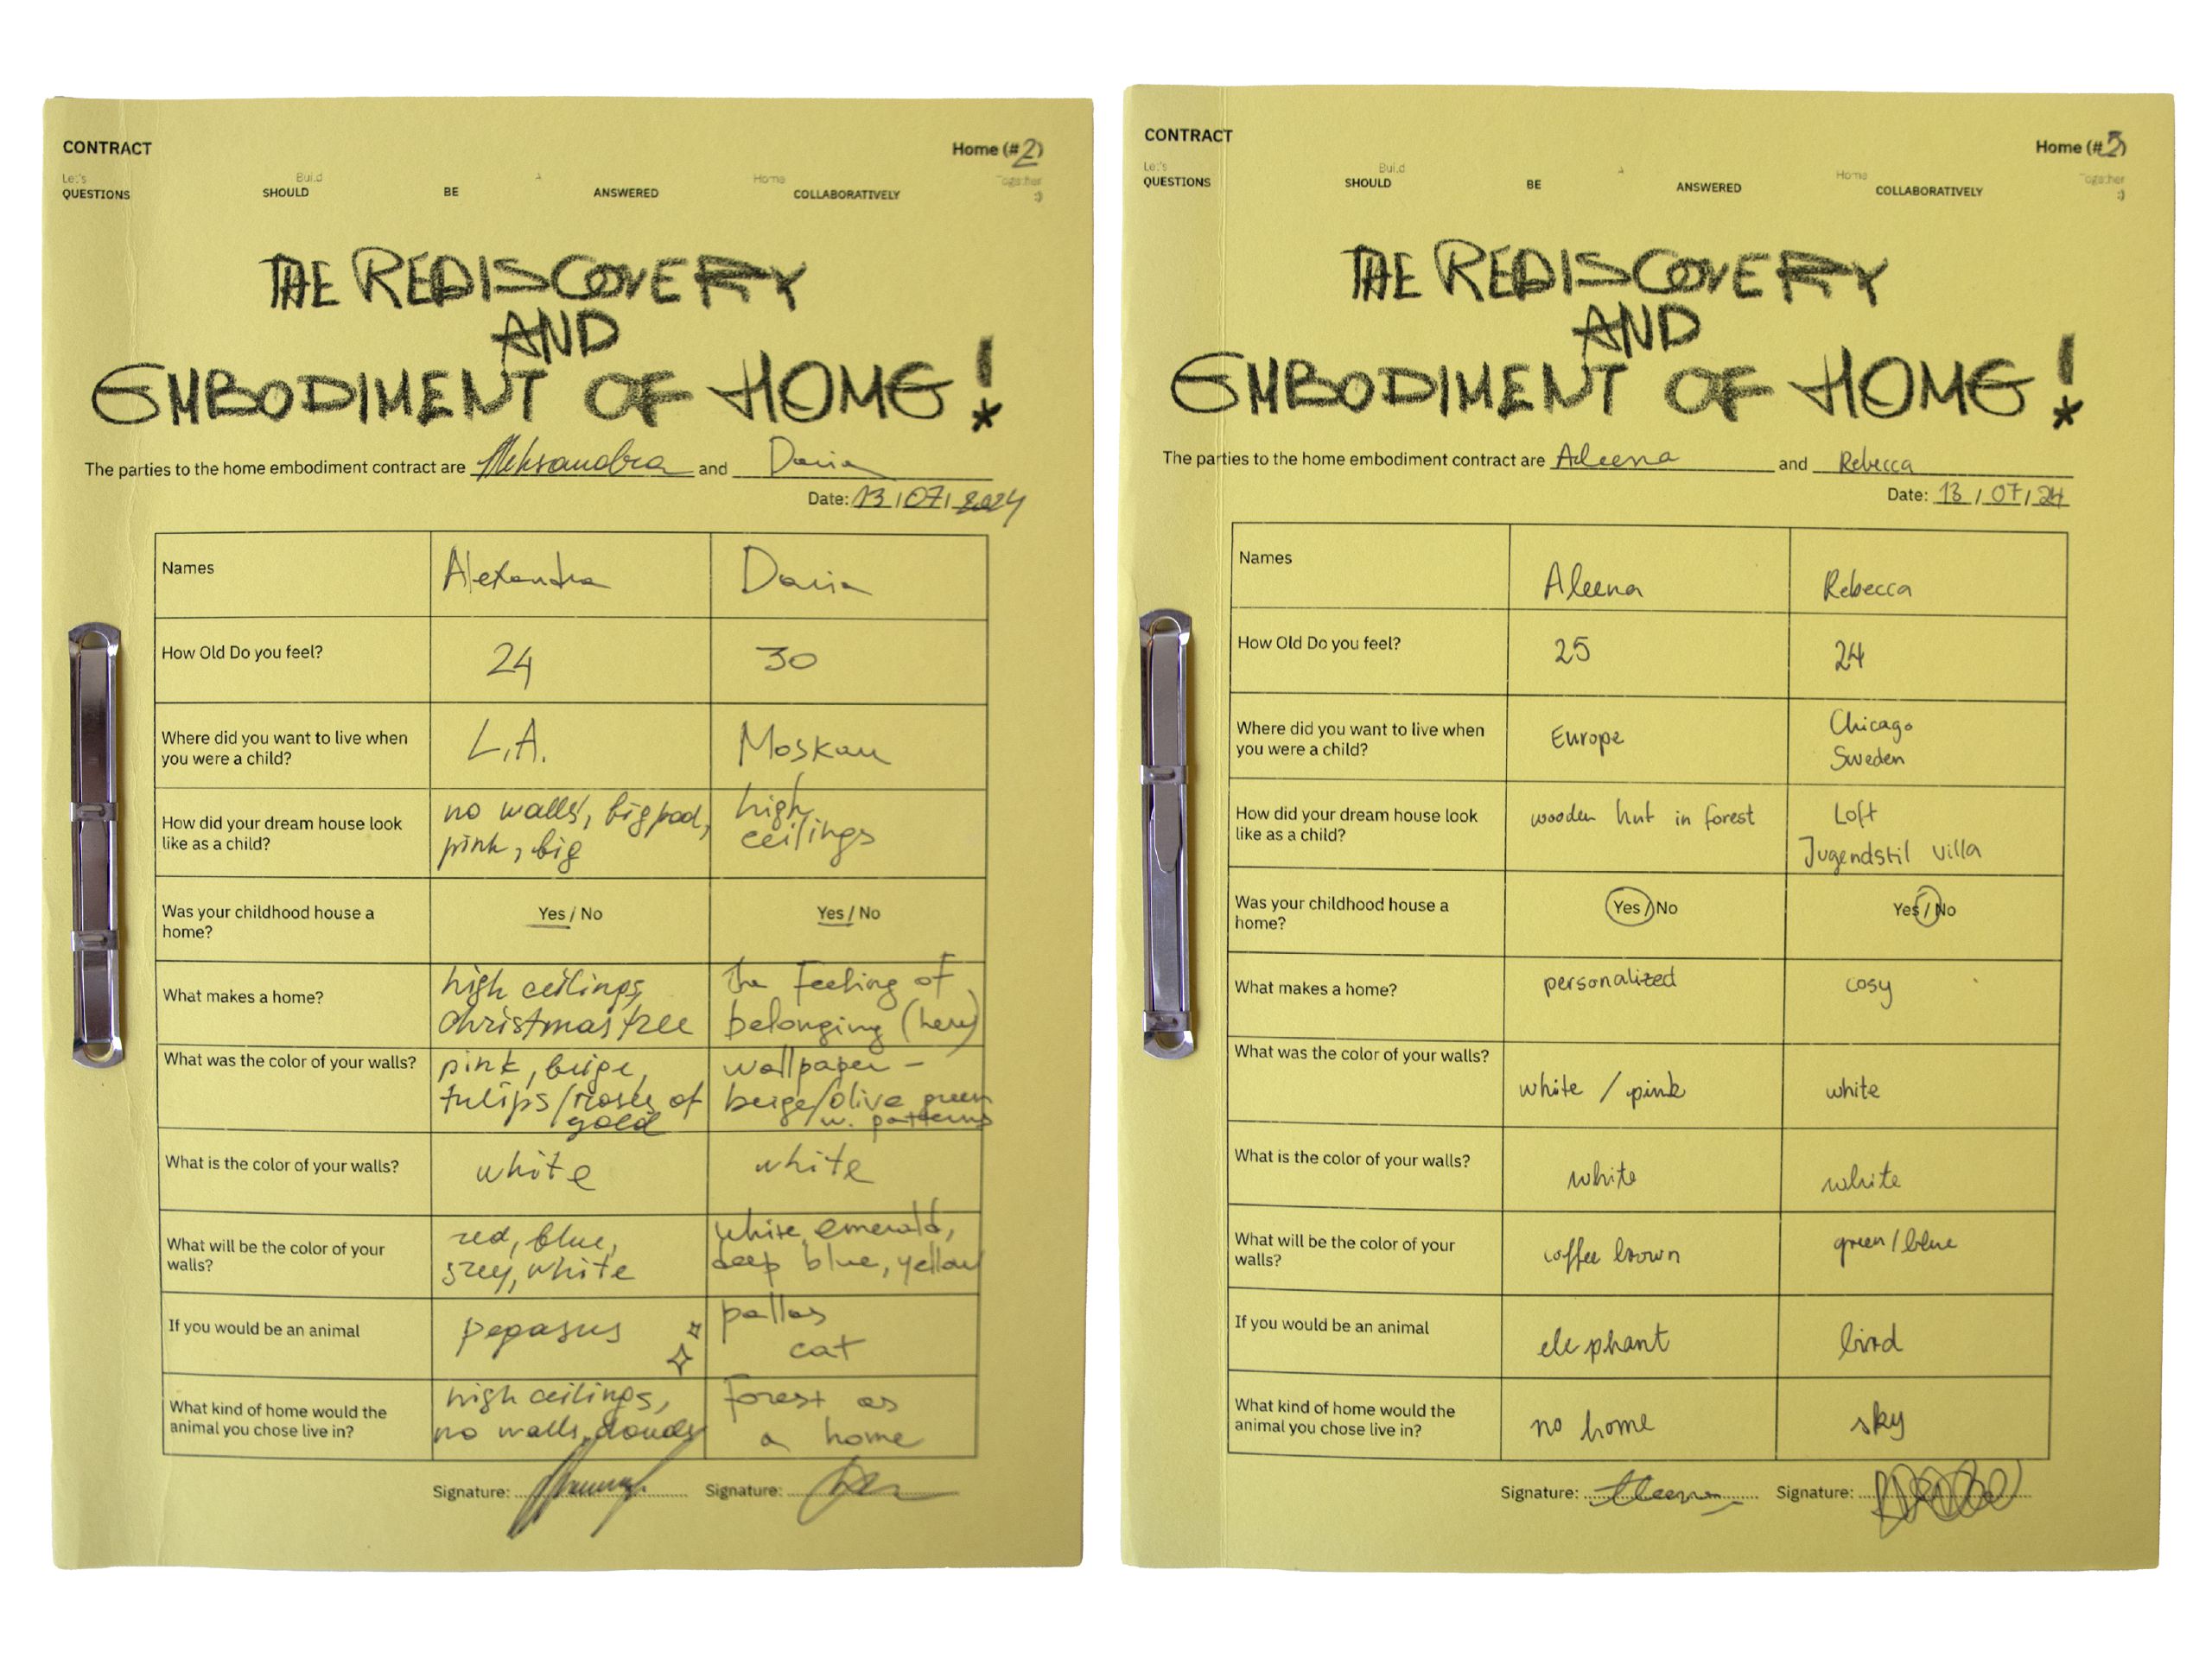 CONTRACT
Home (#2)
Let's Build A Home Together
QUESTIONS SHOULD BE ANSWERED COLLABORATIVELY :)
THE REDISCOVERY
AND
EMBODIMENT OF HOME!
The parties to the home embodiment contract are Aleksandra and Daria
Date: 13/07/2024
Names Alexandra Daria
How Old Do you feel? 24 30
Where did you want to live when
you were a child?
L.A.
Moskau
How did your dream house look
like as a child?
no walls, big pool,
pink, big
high
ceilings
Was your childhood house a
home?
Yes / No
Yes / No
What makes a home?
high ceilings,
christmas tree
the feeling of
belonging (here)
What was the color of your walls?
pink, beige,
tulips/roses of
gold
wallpaper –
beige/olive green
w. patterns
What is the color of your walls? white white
What will be the color of your
walls?
red, blue,
grey, white
white, emerald,
deep blue, yellow
If you would be an animal
pegasus
pallas
cat
What kind of home would the
animal you chose live in?
high ceilings,
no walls, clouds
forest as
a home
Signature: Signature:
CONTRACT
Home (#3)
Let's Build A Home Together
QUESTIONS SHOULD BE ANSWERED COLLABORATIVELY :)
THE REDISCOVERY
AND
EMBODIMENT OF HOME!
The parties to the home embodiment contract are Aleena and Rebecca
Date: 13/07/24
Names Aleena Rebecca
How Old Do you feel? 25 24
Where did you want to live when
you were a child?
Europe
Chicago
Sweden
How did your dream house look
like as a child?
wooden hut in forest
Loft
Jugendstil Villa
Was your childhood house a
home?
Yes / No
Yes / No
What makes a home? personalized cosy
What was the color of your walls?
white / pink
white
What is the color of your walls? white white
What will be the color of your
walls?
coffee brown
green/blue
If you would be an animal elephant bird
What kind of home would the
animal you chose live in?
no home
sky
Signature: Aleena Signature: